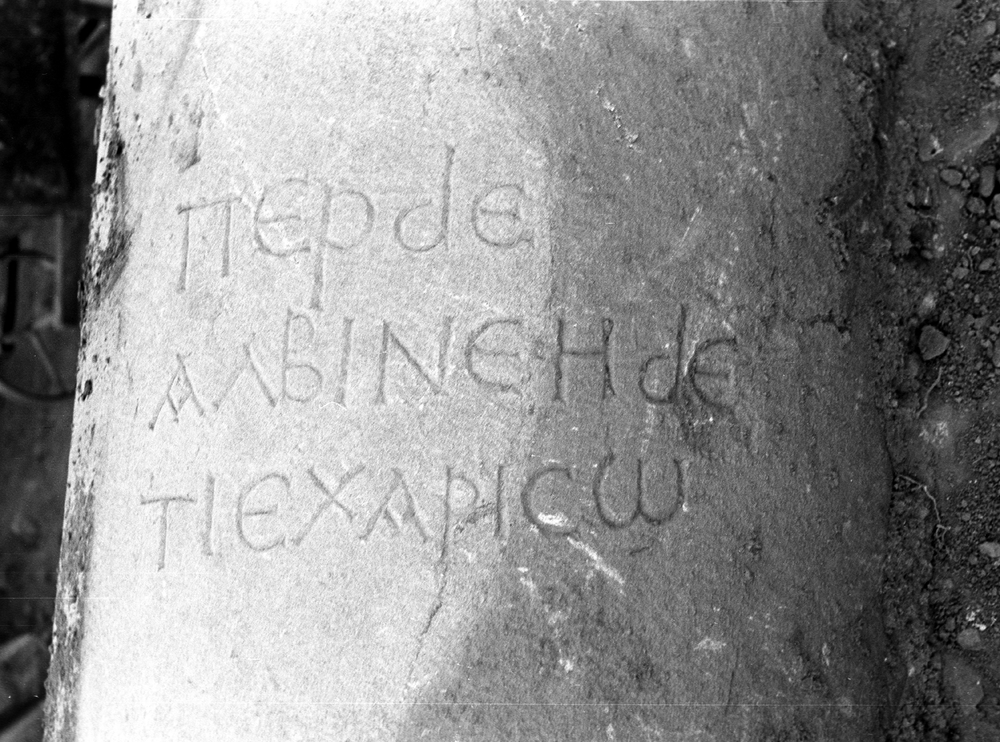 ΠΕΡΔΕ
ΑΛΒΙΝΕΗΔΕ
ΤΙΕΧΑΡΙϹΩ